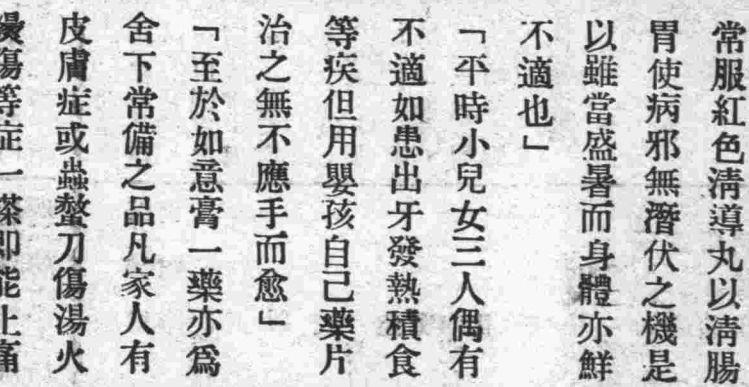 常服紅色淸導丸以淸腸
胃使病邪無潛伏之機是
以雖當盛暑而身體亦鮮
不適也」
「平時小兒女三人偶有
不適如患出牙發熱積食
等疾但用嬰孩自己藥片
治之無不應手而愈」
「至於如意膏一藥亦爲
舍下常備之品凡家人有
皮膚症或蟲螫刀傷湯火
燙傷等症一搽即能止痛